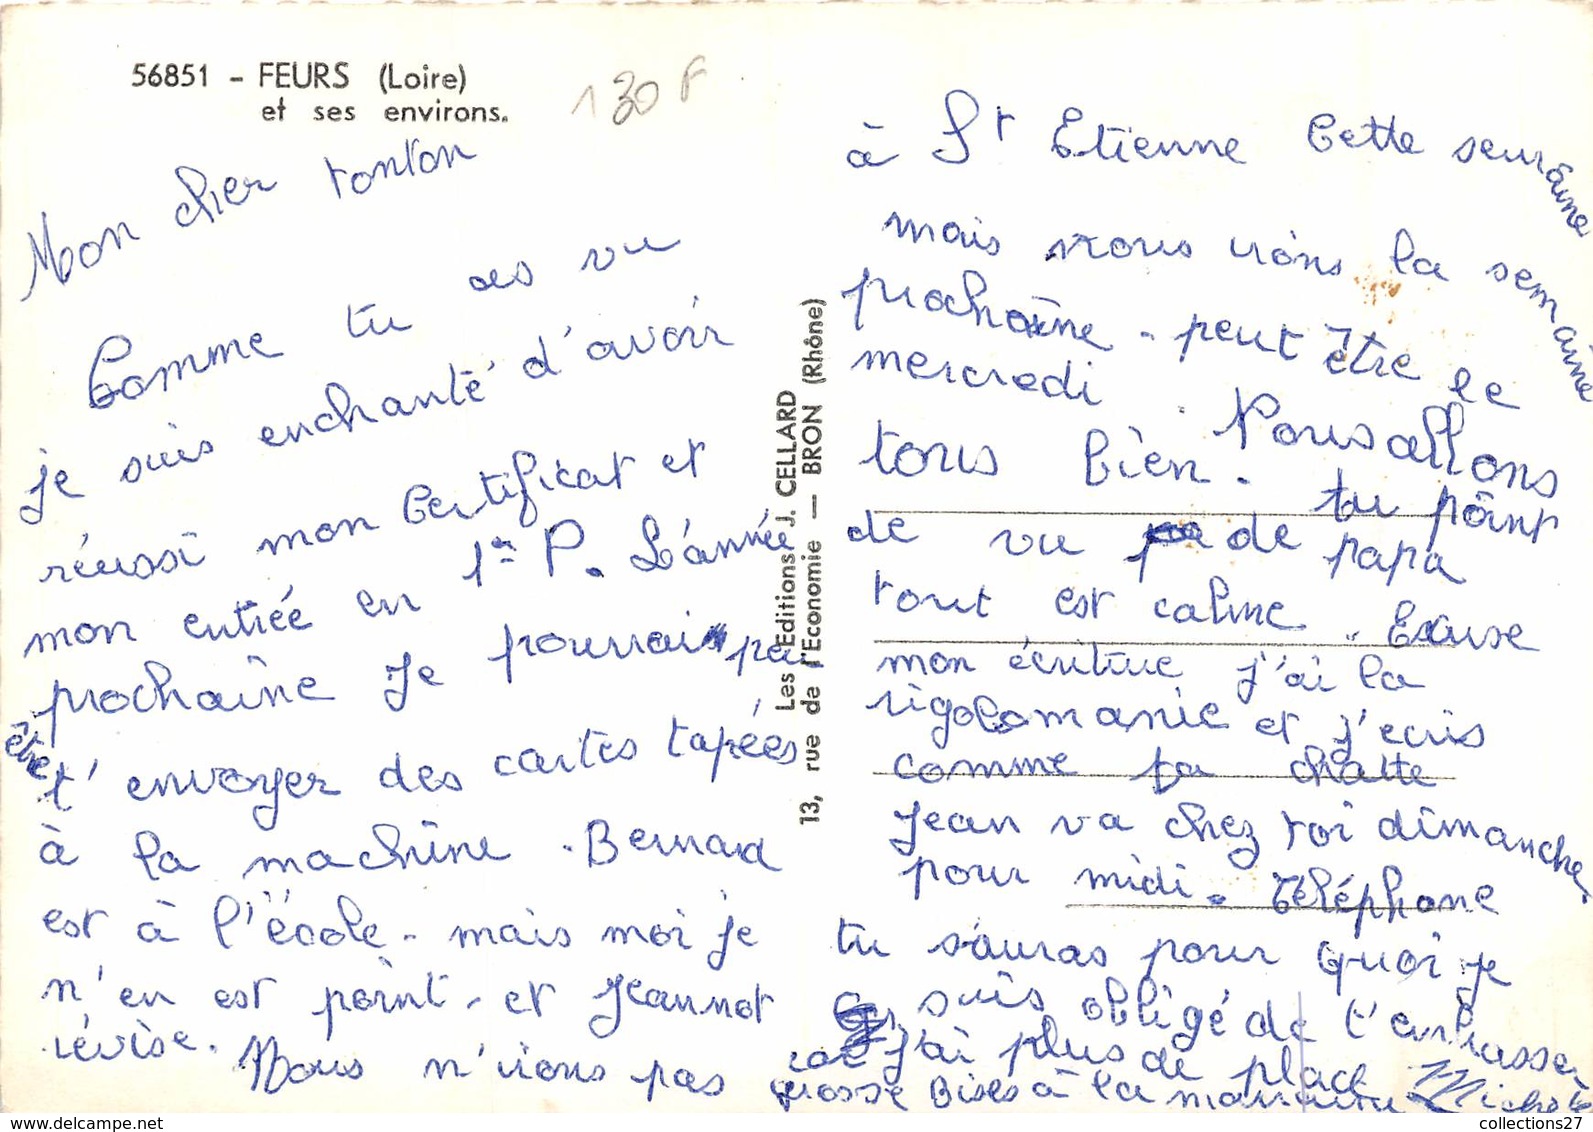 56851 - FEURS (Loire)
et ses environs.
130 F
Mon cher tonton
Comme tu as vu
je suis enchanté d'avoir
réussi mon Certificat et
mon entrée en 1ère P. L'année
prochaine je pourrai pe
être t'envoyer des cartes tapées
à la machine. Bernard
est à l'école. mais moi je
n'en est point. et Jeannot
révise. Nous n'irons pas
Les Editions J. CELLARD
13, rue de l'Economie — BRON (Rhône)
à St Etienne Cette semaine
mais nous irons la semaine
prochaine - peut être le
mercredi. Nous allons
tous bien. tu point
de vu de papa
tout est calme. Excuse
mon écriture j'ai la
rigolomanie et j'ecris
comme ta chatte
Jean va chez toi dimanche
pour midi. Téléphone
tu sauras pour quoi je
suis obligé de t'embrasser
car j'ai plus de place
grosse Bises à la marraine Michel
collections27